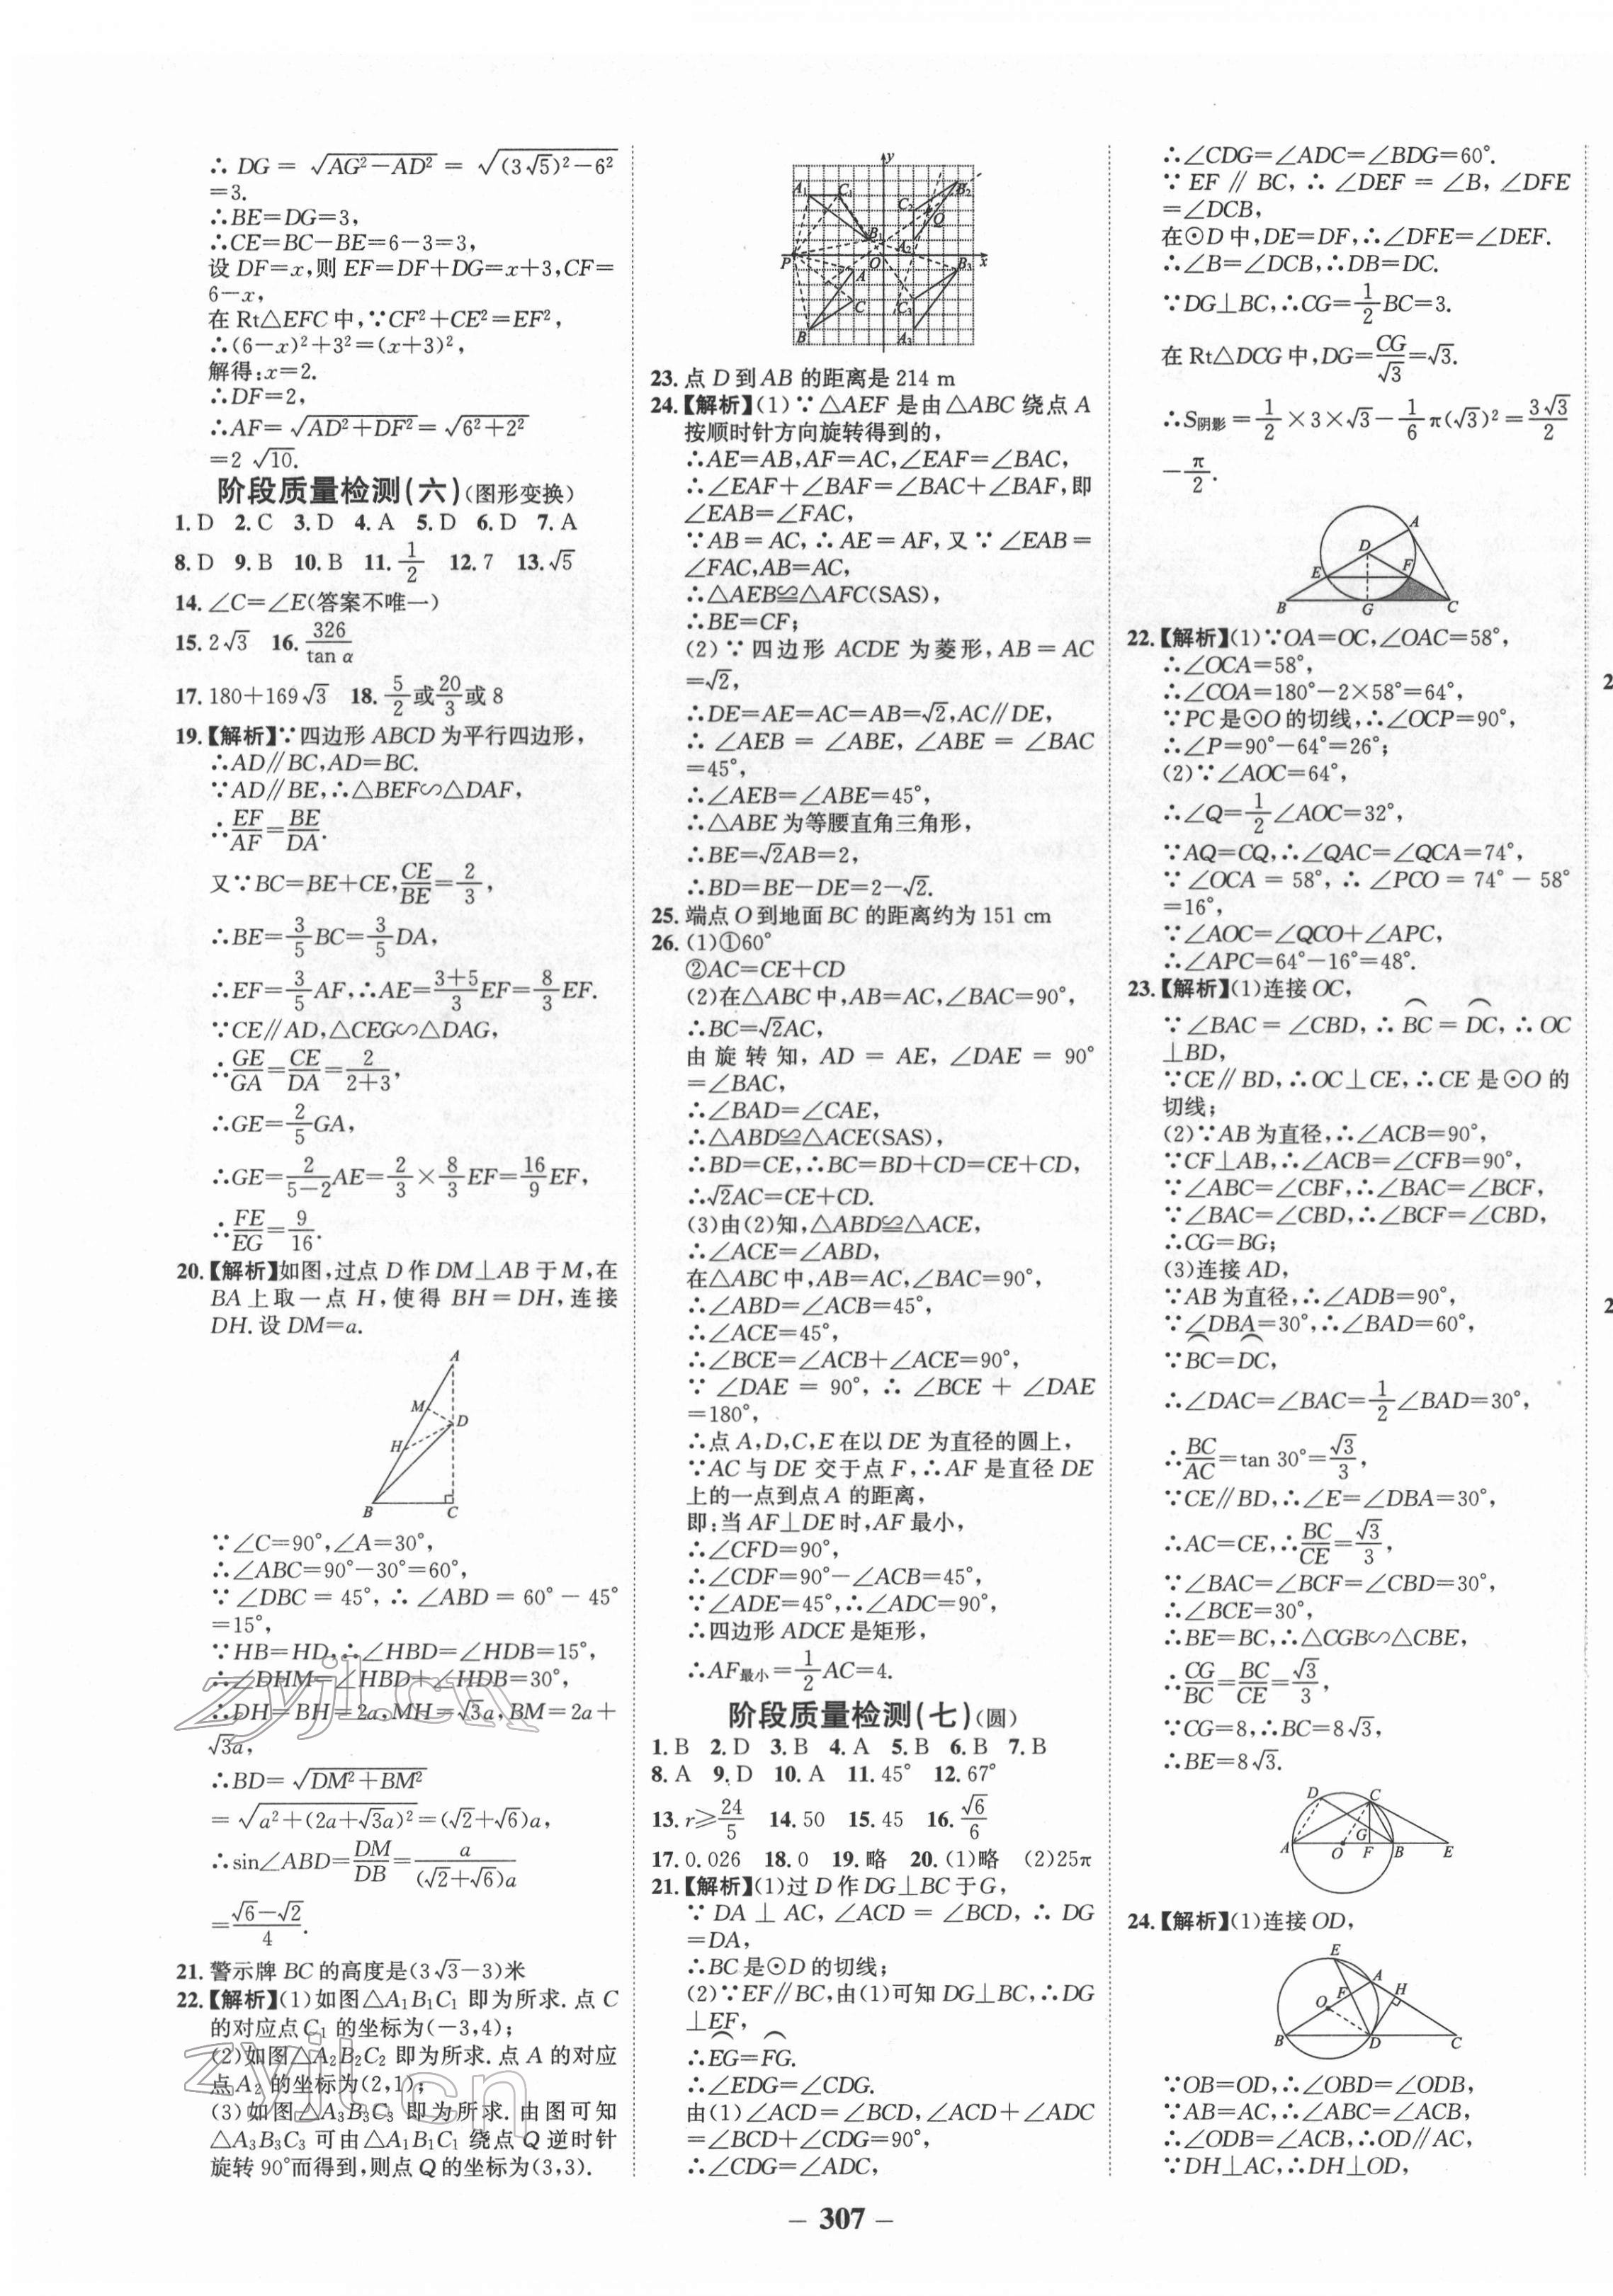 ∴ DG = √(AG²−AD²) = √((3√5)²−6²)
=3.
∴BE=DG=3,
∴CE=BC−BE=6−3=3,
设 DF=x,则 EF=DF+DG=x+3,CF=
6−x,
在 Rt△EFC 中,∵CF²+CE²=EF²,
∴(6−x)²+3²=(x+3)²,
解得:x=2.
∴DF=2,
∴AF=√(AD²+DF²)=√(6²+2²)
=2√10.
阶段质量检测(六)(图形变换)
1. D 2. C 3. D 4. A 5. D 6. D 7. A
8. D 9. B 10. B 11. 1/2 12. 7 13. √5
14. ∠C=∠E(答案不唯一)
15. 2√3 16. 326/tan α
17. 180+169√3 18. 5/2或20/3或 8
19.【解析】∵四边形 ABCD 为平行四边形,
∴AD∥BC,AD=BC.
∵AD∥BE,∴△BEF∽△DAF,
∴EF/AF=BE/DA.
又∵BC=BE+CE,CE/BE=2/3,
∴BE=3/5BC=3/5DA,
∴EF=3/5AF,∴AE=(3+5)/3EF=8/3EF.
∵CE∥AD,△CEG∽△DAG,
∴GE/GA=CE/DA=2/(2+3),
∴GE=2/5GA,
∴GE=2/(5−2)AE=2/3×8/3EF=16/9EF,
∴FE/EG=9/16.
20.【解析】如图,过点 D 作 DM⊥AB 于 M,在
BA 上取一点 H,使得 BH=DH,连接
DH. 设 DM=a.
A
M
D
H
B
C
∵∠C=90°,∠A=30°,
∴∠ABC=90°−30°=60°,
∵∠DBC=45°,∴∠ABD=60°−45°
=15°,
∵HB=HD,∴∠HBD=∠HDB=15°,
∴∠DHM=∠HBD+∠HDB=30°,
∴DH=BH=2a,MH=√3a,BM=2a+
√3a,
∴BD=√(DM²+BM²)
=√(a²+(2a+√3a)²)=(√2+√6)a,
∴sin∠ABD=DM/DB=a/((√2+√6)a)
=(√6−√2)/4.
21. 警示牌 BC 的高度是(3√3−3)米
22.【解析】(1)如图△A₁B₁C₁ 即为所求. 点 C
的对应点 C₁ 的坐标为(−3,4);
(2)如图△A₂B₂C₂ 即为所求. 点 A 的对应
点 A₂ 的坐标为(2,1);
(3)如图△A₃B₃C₃ 即为所求. 由图可知
△A₃B₃C₃ 可由△A₁B₁C₁ 绕点 Q 逆时针
旋转 90°而得到,则点 Q 的坐标为(3,3).
y
A₁ C₁ B₂
C₂
Q
B₁ A₂
P O B₃ x
A
C C₃
B A₃
23. 点 D 到 AB 的距离是 214 m
24.【解析】(1)∵△AEF 是由△ABC 绕点 A
按顺时针方向旋转得到的,
∴AE=AB,AF=AC,∠EAF=∠BAC,
∴∠EAF+∠BAF=∠BAC+∠BAF,即
∠EAB=∠FAC,
∵AB=AC,∴AE=AF,又∵∠EAB=
∠FAC,AB=AC,
∴△AEB≌△AFC(SAS),
∴BE=CF;
(2)∵四边形 ACDE 为菱形,AB=AC
=√2,
∴DE=AE=AC=AB=√2,AC∥DE,
∴∠AEB=∠ABE,∠ABE=∠BAC
=45°,
∴∠AEB=∠ABE=45°,
∴△ABE 为等腰直角三角形,
∴BE=√2AB=2,
∴BD=BE−DE=2−√2.
25. 端点 O 到地面 BC 的距离约为 151 cm
26. (1)①60°
②AC=CE+CD
(2)在△ABC 中,AB=AC,∠BAC=90°,
∴BC=√2AC,
由旋转知,AD=AE,∠DAE=90°
=∠BAC,
∴∠BAD=∠CAE,
∴△ABD≌△ACE(SAS),
∴BD=CE,∴BC=BD+CD=CE+CD,
∴√2AC=CE+CD.
(3)由(2)知,△ABD≌△ACE,
∴∠ACE=∠ABD,
在△ABC 中,AB=AC,∠BAC=90°,
∴∠ABD=∠ACB=45°,
∴∠ACE=45°,
∴∠BCE=∠ACB+∠ACE=90°,
∵∠DAE=90°,∴∠BCE+∠DAE
=180°,
∴点 A,D,C,E 在以 DE 为直径的圆上,
∵AC 与 DE 交于点 F,∴AF 是直径 DE
上的一点到点 A 的距离,
即:当 AF⊥DE 时,AF 最小,
∴∠CFD=90°,
∴∠CDF=90°−∠ACB=45°,
∵∠ADE=45°,∴∠ADC=90°,
∴四边形 ADCE 是矩形,
∴AF最小=1/2AC=4.
阶段质量检测(七)(圆)
1. B 2. D 3. B 4. A 5. B 6. B 7. B
8. A 9. D 10. A 11. 45° 12. 67°
13. r≥24/5 14. 50 15. 45 16. √6/6
17. 0.026 18. 0 19. 略 20. (1)略 (2)25π
21.【解析】(1)过 D 作 DG⊥BC 于 G,
∵DA⊥AC,∠ACD=∠BCD,∴DG
=DA,
∴BC 是⊙D 的切线;
(2)∵EF∥BC,由(1)可知 DG⊥BC,∴DG
⊥EF,
∴EG⌒=FG⌒.
∴∠EDG=∠CDG.
由(1)∠ACD=∠BCD,∠ACD+∠ADC
=∠BCD+∠CDG=90°,
∴∠CDG=∠ADC,
∴∠CDG=∠ADC=∠BDG=60°.
∵EF∥BC,∴∠DEF=∠B,∠DFE
=∠DCB,
在⊙D 中,DE=DF,∴∠DFE=∠DEF.
∴∠B=∠DCB,∴DB=DC.
∵DG⊥BC,∴CG=1/2BC=3.
在 Rt△DCG 中,DG=CG/√3=√3.
∴S阴影=1/2×3×√3−1/6π(√3)²=3√3/2
−π/2.
A
D
E F
B G C
22.【解析】(1)∵OA=OC,∠OAC=58°,
∴∠OCA=58°,
∴∠COA=180°−2×58°=64°,
∵PC 是⊙O 的切线,∴∠OCP=90°,
∴∠P=90°−64°=26°;
(2)∵∠AOC=64°,
∴∠Q=1/2∠AOC=32°,
∵AQ=CQ,∴∠QAC=∠QCA=74°,
∵∠OCA=58°,∴∠PCO=74°−58°
=16°,
∵∠AOC=∠QCO+∠APC,
∴∠APC=64°−16°=48°.
23.【解析】(1)连接 OC,
∵∠BAC=∠CBD,∴BC⌒=DC⌒,∴OC
⊥BD,
∵CE∥BD,∴OC⊥CE,∴CE 是⊙O 的
切线;
(2)∵AB 为直径,∴∠ACB=90°,
∵CF⊥AB,∴∠ACB=∠CFB=90°,
∵∠ABC=∠CBF,∴∠BAC=∠BCF,
∵∠BAC=∠CBD,∴∠BCF=∠CBD,
∴CG=BG;
(3)连接 AD,
∵AB 为直径,∴∠ADB=90°,
∵∠DBA=30°,∴∠BAD=60°,
∵BC⌒=DC⌒,
∴∠DAC=∠BAC=1/2∠BAD=30°,
∴BC/AC=tan 30°=√3/3,
∵CE∥BD,∴∠E=∠DBA=30°,
∴AC=CE,∴BC/CE=√3/3,
∵∠BAC=∠BCF=∠CBD=30°,
∴∠BCE=30°,
∴BE=BC,∴△CGB∽△CBE,
∴CG/BC=BC/CE=√3/3,
∵CG=8,∴BC=8√3,
∴BE=8√3.
D C
G
A O F B E
24.【解析】(1)连接 OD,
E
A
F H
O
B D C
∵OB=OD,∴∠OBD=∠ODB,
∵AB=AC,∴∠ABC=∠ACB,
∴∠ODB=∠ACB,∴OD∥AC,
∵DH⊥AC,∴DH⊥OD,
2
2
zyjl.cn
zyjl.cn
— 307 —